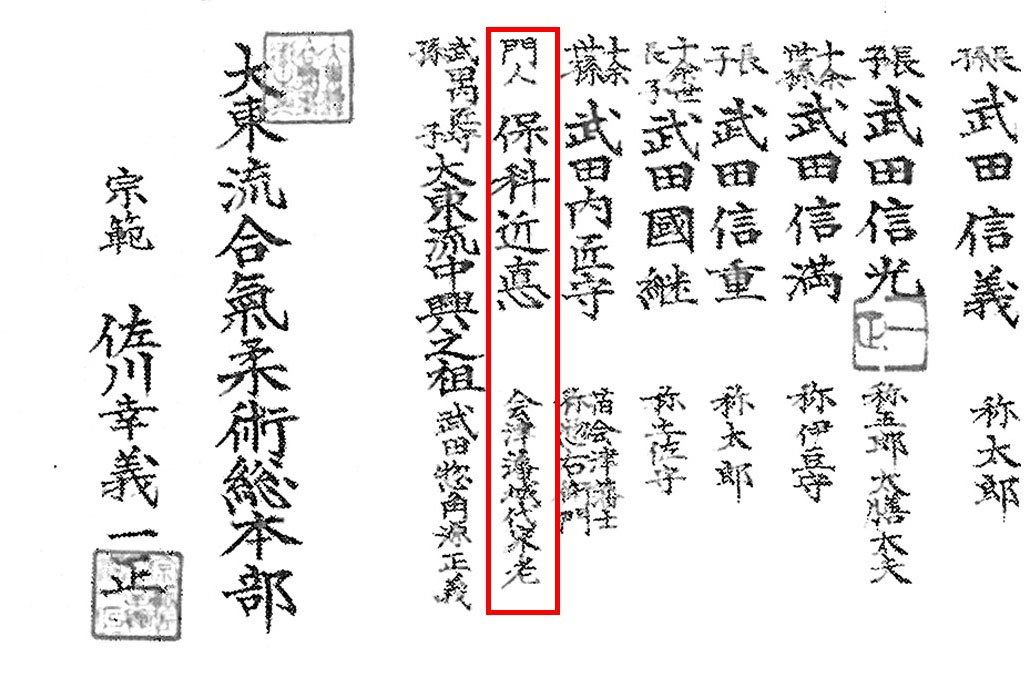 長孫 武田信義 称太郎
長子 武田信光 称五郎 大膳大夫
十余世孫 武田信満 称伊豆守
長子 武田信重 称太郎
十余世長子 武田國継 称土佐守
十余世孫 武田内匠守 旧会津藩士 称惣右衛門
門人 保科近悳 会津藩城代家老
武田 孫子 大東流中興之祖 武田惣角源正義
大東流合氣柔術総本部
宗範 佐川幸義 一正